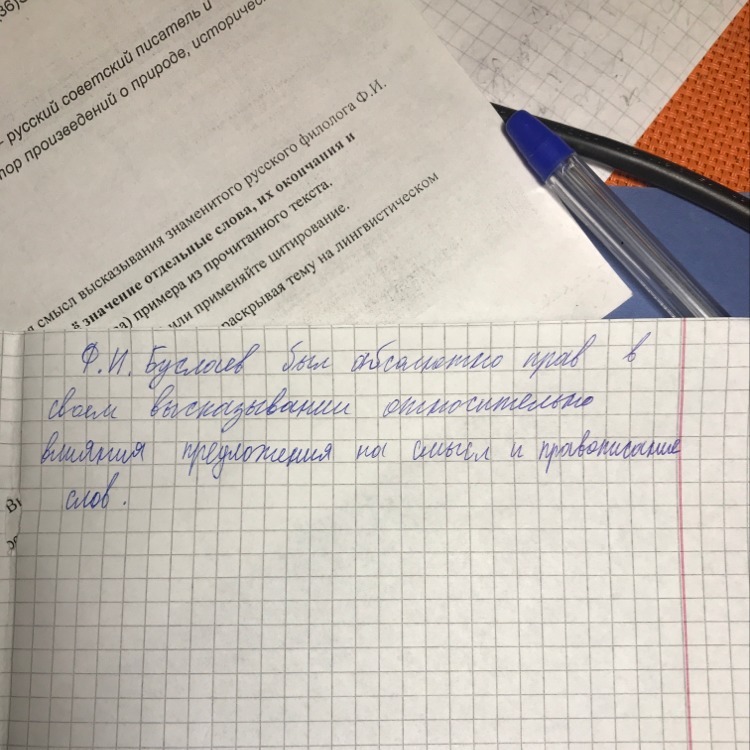 36)
– русский советский писатель и
тор произведений о природе, историчес
смысл высказывания знаменитого русского филолога Ф.И.
значение отдельные слова, их окончания и
а) примера из прочитанного текста.
или применяйте цитирование.
раскрывая тему на лингвистическом
Ф.И. Буслаев был абсолютно прав в
своем высказывании относительно
влияния предложения на смысл и правописание
слов.